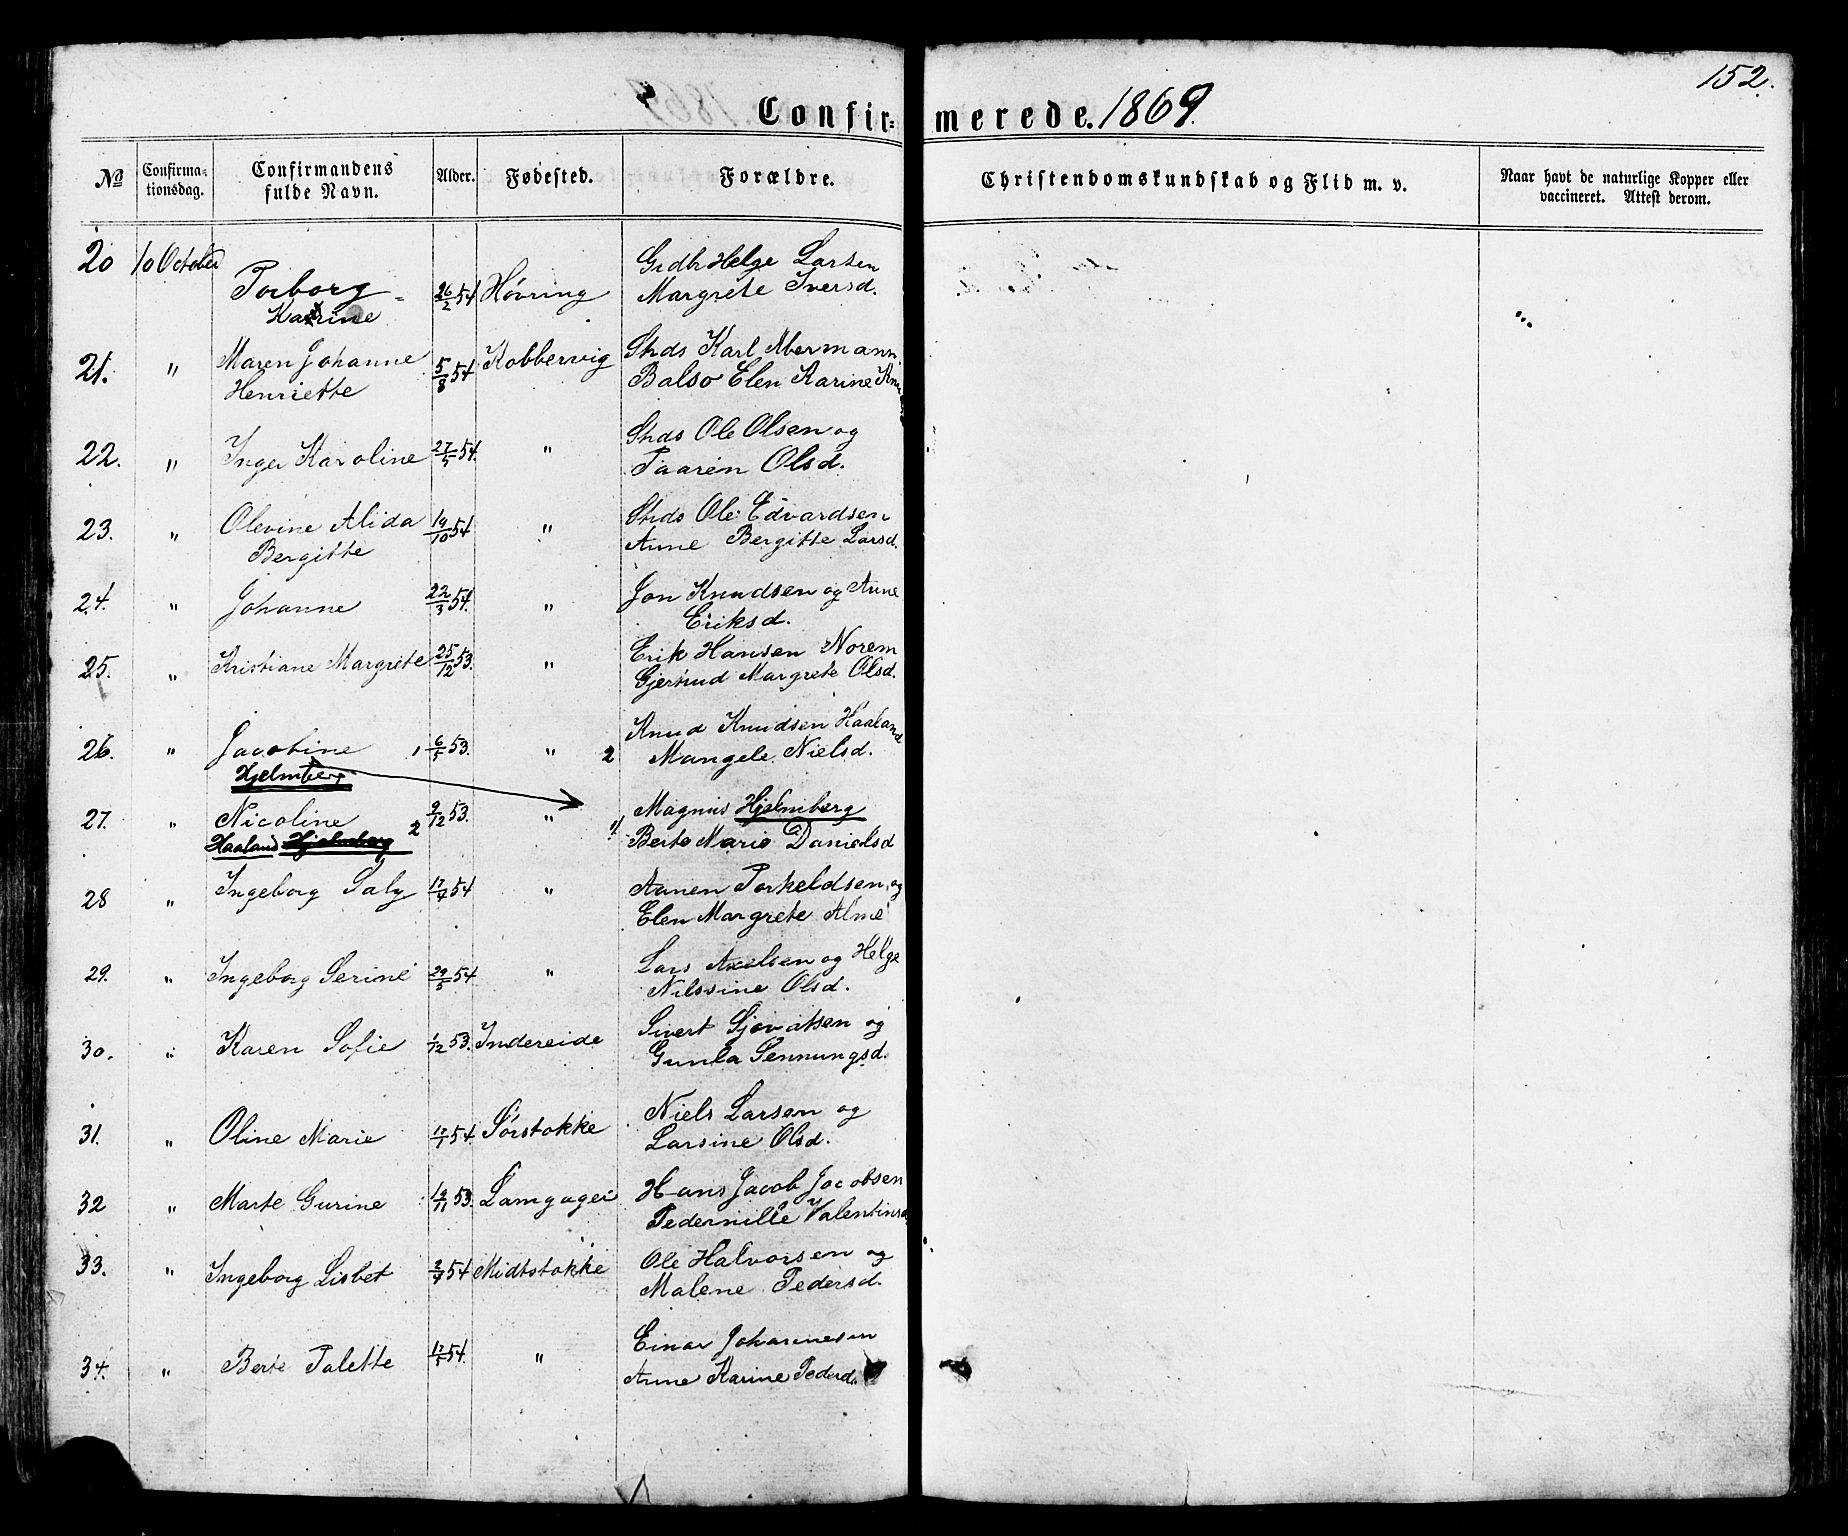 152.
Confirmerede. 1869.
№ Confirmationsdag. Confirmandens fulde Navn. Alder. Fødested. Forældre. Christendomskundskab og Flid m. v. Naar havt de naturlige Kopper eller vaccineret. Attest derom.
20 10 October Torborg Karine 26/2 54 Høvring Gidbr Helge Larsen
Margrete Iversd.
21. " Maren Johanne 5/8 54 Kobbervig Stds Karl Abermann
Henriette Balso Elen Karine
22. " Inger Karoline 27/5 54. " Stds Ole Olsen og
Taaren Olsd.
23. " Olevine Alida 19/10 54 " Stds Ole Edvardsen
Bergitte Anne Bergitte Larsd.
24. " Johanne 22/3 54. " Jon Knudsen og Anne
Eriksd.
25. " Kristiane Margrete 25/12 53. " Erik Hansen Norem
Gjertrud Margrete Olsd.
26. " Jacobine 1 6/5 53. " 2 Knud Knudsen Haaland
Hjelmberg Mangele Nielsd.
27. " Nicoline 2 9/12 53. " Magnus Hjelmberg
Haaland Hjelmberg Berte Marie Danielsd
28 " Ingeborg Saly 17/4 54 " Aanen Torkeldsen og
Elen Margrete Alme
29. " Ingeborg Serine 29/5 54 " Lars Axelsen og Helge
Nilssine Olsd.
30. " Karen Sofie 1/12 53. Indereide Sivert Sjovatsen og
Gunla Sennungsd.
31. " Oline Marie 17/1 54. Sørstokke Niels Larsen og
Larsine Olsd.
32 " Marte Gurine 19/11 53. Hans Jacob Jacobsen
Pedernille Valentinsd
33. " Ingeborg Lisbet 2/4 54 Midtstokke Ole Halvorsen og
Malene Pedersd.
34. " Berte Talette 17/5 54. " Einar Johannesen
Anne Karine Pedersd.